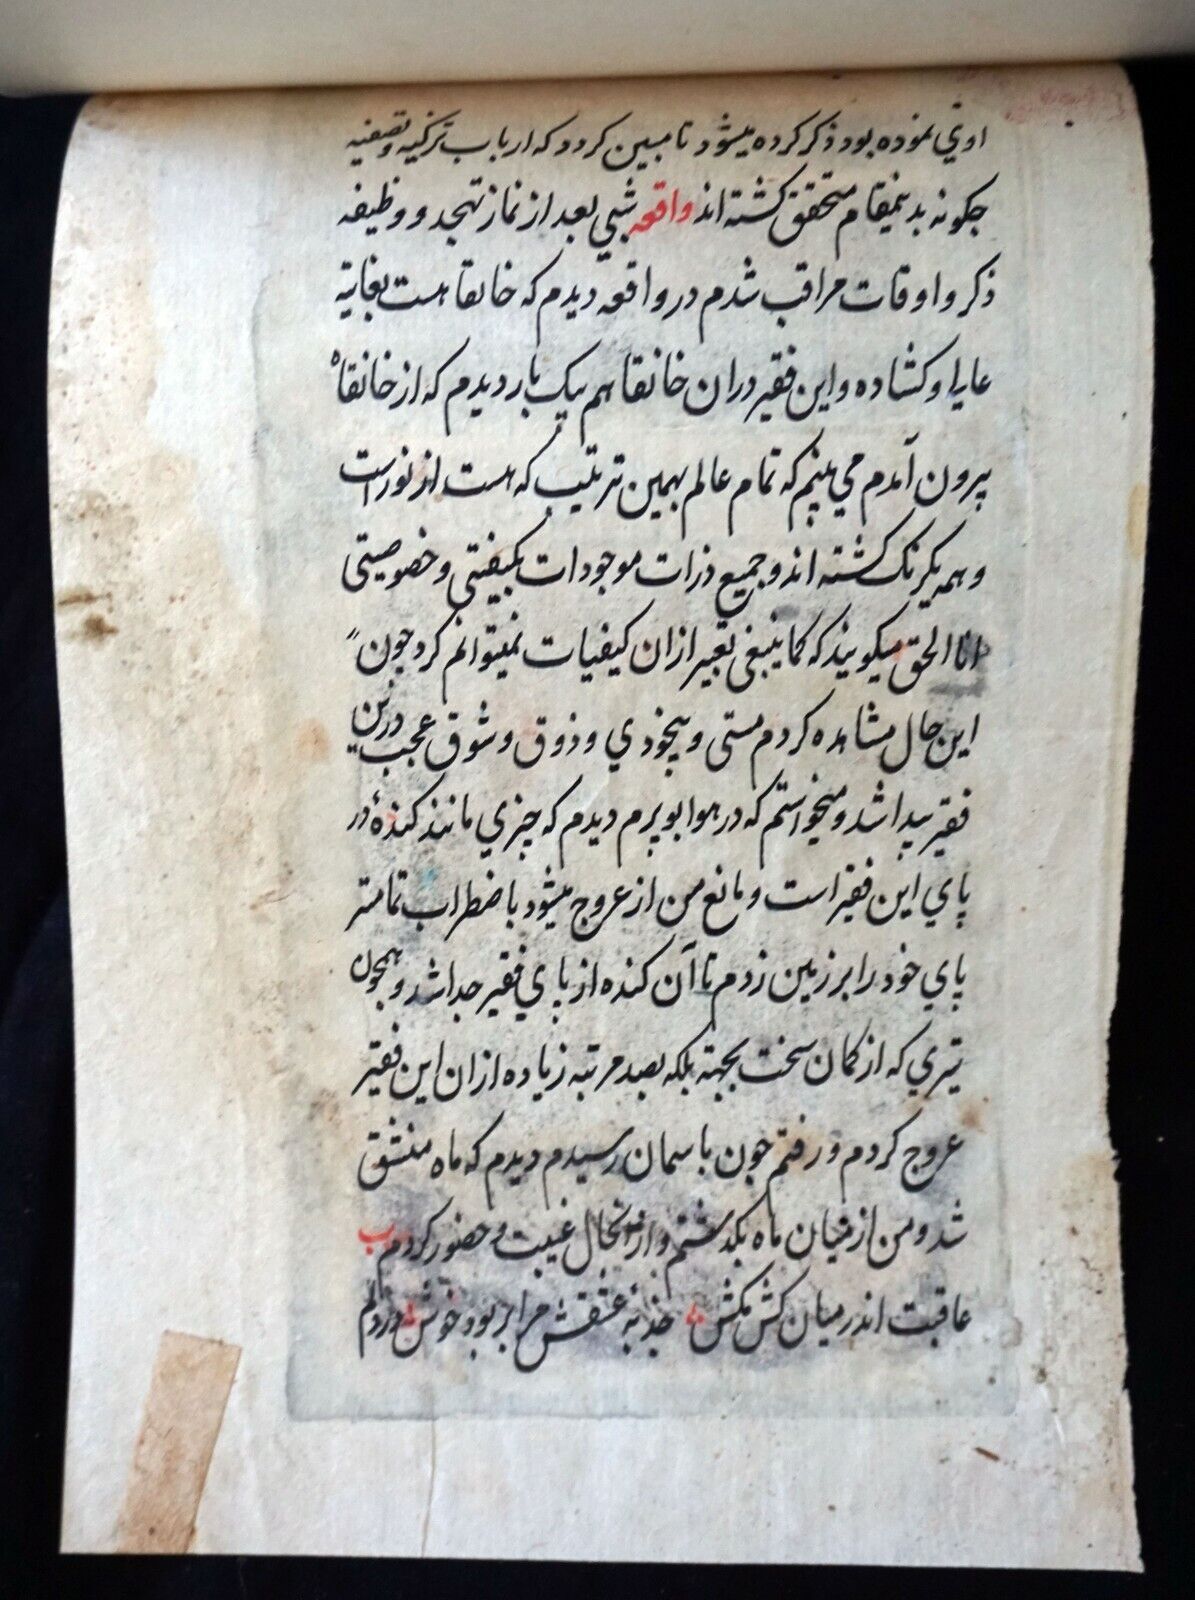 اوتي نموده بود ذكر كرده ميشود تا مبين كردد كه ارباب تزكيه و تصفيه
جكونه بدينمقام متحقق كشته اند واقعه شبي بعد از نماز تهجد و وظيفه
ذكر و اوقات مراقب شدم در واقعه ديدم كه خانقا هست بغايت
عالي و كشاده و اين فقير دران خانقا هم يكبار ديدم كه از خانقاه
بيرون آمدم مي بينم كه تمام عالم بهمين ترتيب كه هست از نور است
و همه يكرنك كشته اند و جميع ذرات موجودات بكيفيتي و خصوصيتي
انا الحق ميكويند كه كما ينبغي تعبير ازان كيفيات نميتوانم كرد جون
اين حال مشاهده كردم مستي و بيخودي و ذوق و شوق عجب درين
فقير پيدا شد و ميخواستم كه در هوا بو پرم ديدم كه چيزي مانند كندهٔ در
پاي اين فقير است و مانع من از عروج ميشود باضطراب تمامتر
پاي خود را بر زمين زدم تا آن كنده از پاي فقير جدا شد و همچون
تيري كه از كمان سخت بجهد بلكه بصد مرتبه زياده ازان اين فقير
عروج كردم و رفتم جون باسمان رسيدم ديدم كه ماه منشق
شد و من از ميان ماه بكذشتم و ازانحال غيبت و حضور كردم ب
عاقبت اندر ميان كش مكش جذبهٔ عشقش مرا بربود خوش در دلم